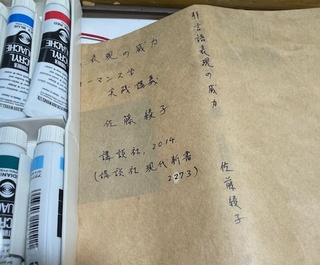 表現の威力
ーマンス学
実践講義
佐藤綾子
講談社, 2014.
(講談社現代新書
2273)
非言語表現の威力
佐藤綾子
ACRYL
GOUACHE